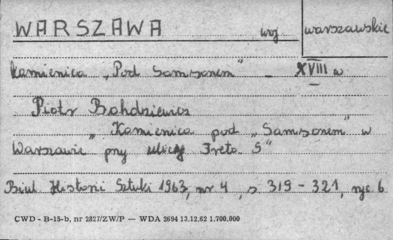 WARSZAWA woj. warszawskie
Kamienica „Pod Samsonem" – XVIII w
Piotr Bohdziewicz
„Kamienica pod „Samsonem" w
Warszawie przy ulicy Freta 5"
Biul. Historii Sztuki 1963, nr 4, s. 319 – 321, ryc. 6
CWD - B-15-b, nr 2827/ZW/P — WDA 2694 13.12.62 1.700.000